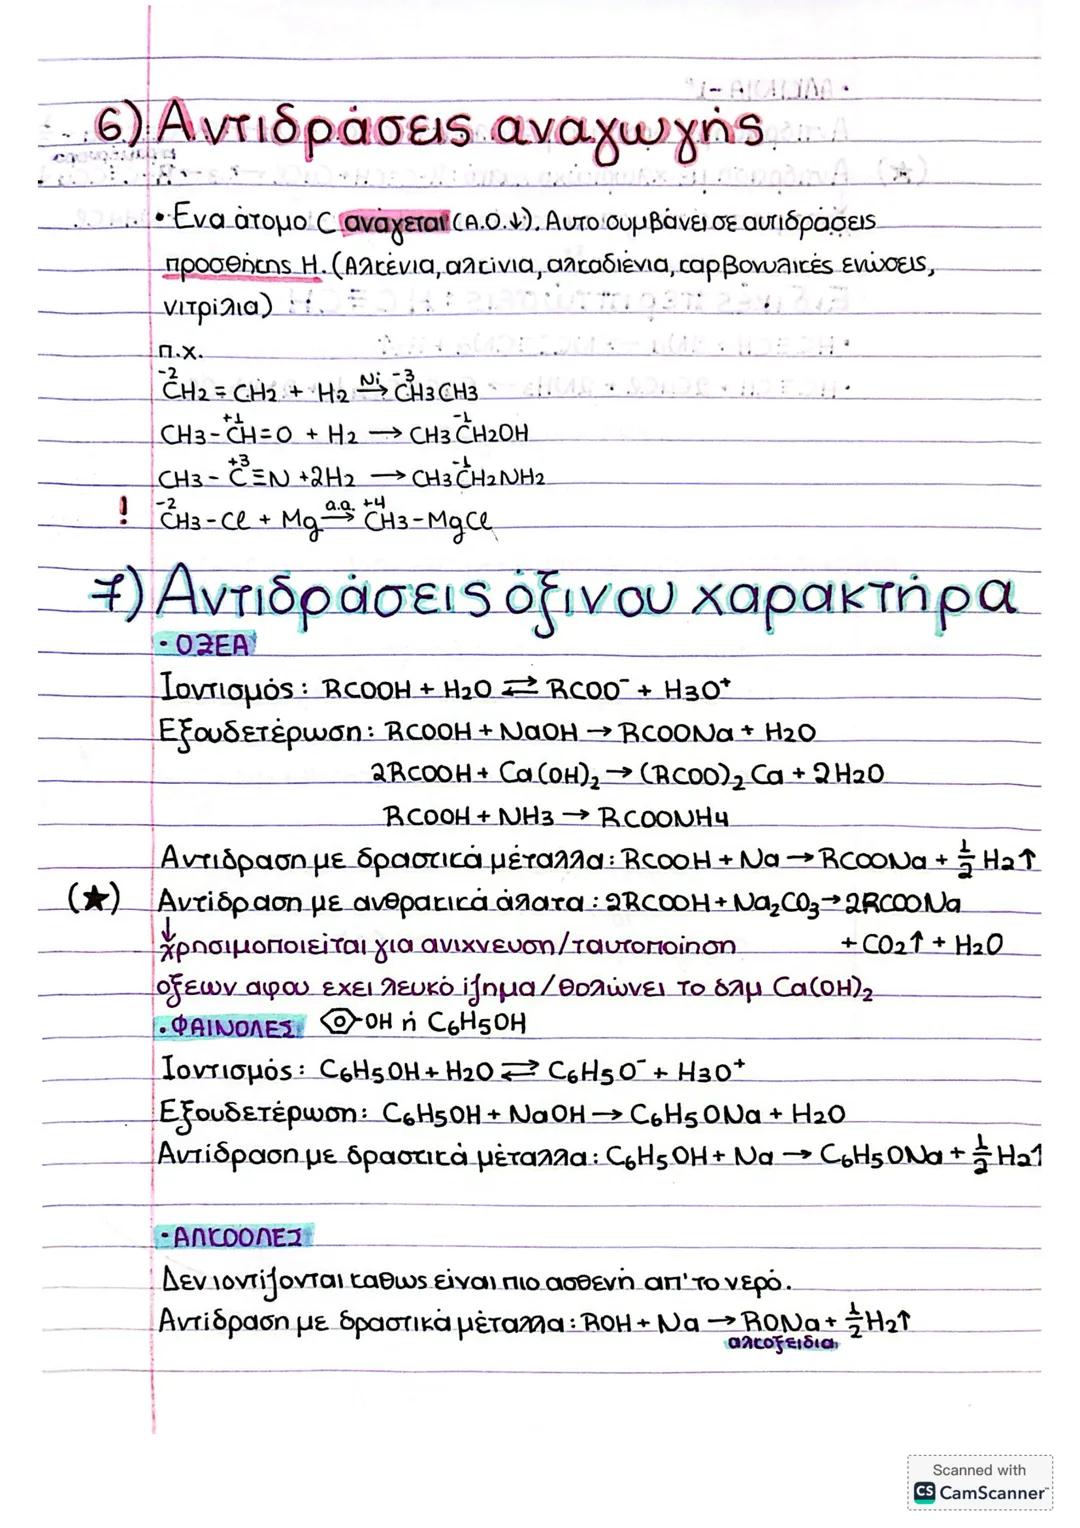 6) Αντιδράσεις αναγωγής
• Ενα άτομο C ανάγεται (Α.Ο.↓). Αυτο συμβάνει σε αντιδράσεις
προσθήκης Η. (Αλκένια, αλκίνια, αλκαδιένια, καρβονυλικές ενώσεις,
νιτρίλια)
π.χ.
-2 -3
CH2 = CH2 + H2 Ni→ CH3CH3
+1 -1
CH3-CH=O + H2 → CH3CH2OH
+3 -1
CH3-C≡N +2H2 → CH3CH2NH2
-2 +4
! CH3-Cl + Mg α.α.→ CH3-MgCl
7) Αντιδράσεις όξινου χαρακτήρα
• ΟΞΕΑ
Ιοντισμός: RCOOH + H2O ⇄ RCOO⁻ + H3O⁺
Εξουδετέρωση: RCOOH + NaOH → RCOONa + H2O
2RCOOH + Ca(OH)₂ → (RCOO)₂Ca + 2H2O
RCOOH + NH3 → RCOONH4
Αντιδραση με δραστικά μέταλλα: RCOOH + Na → RCOONa + ½ H2↑
(★) Αντίδραση με ανθρακικά άλατα: 2RCOOH + Na₂CO₃ → 2RCOONa
↓ χρησιμοποιείται για ανιχνευση/ταυτοποίηση + CO2↑ + H2O
οξεων αφου εχει λευκό ίζημα/θολώνει το δλμ Ca(OH)₂
• ΦΑΙΝΟΛΕΣ -OH ή C6H5OH
Ιοντισμός: C6H5OH + H2O ⇄ C6H5O⁻ + H3O⁺
Εξουδετέρωση: C6H5OH + NaOH → C6H5ONa + H2O
Αντίδραση με δραστικά μέταλλα: C6H5OH + Na → C6H5ONa + ½ H2↑
• ΑΛΚΟΟΛΕΣ
Δεν ιοντίζονται καθως είναι πιο ασθενή απ' το νερό.
Αντίδραση με δραστικά μέταλλα: ROH + Na → RONa + ½ H2↑
αλκοξειδια
Scanned with
CS CamScanner